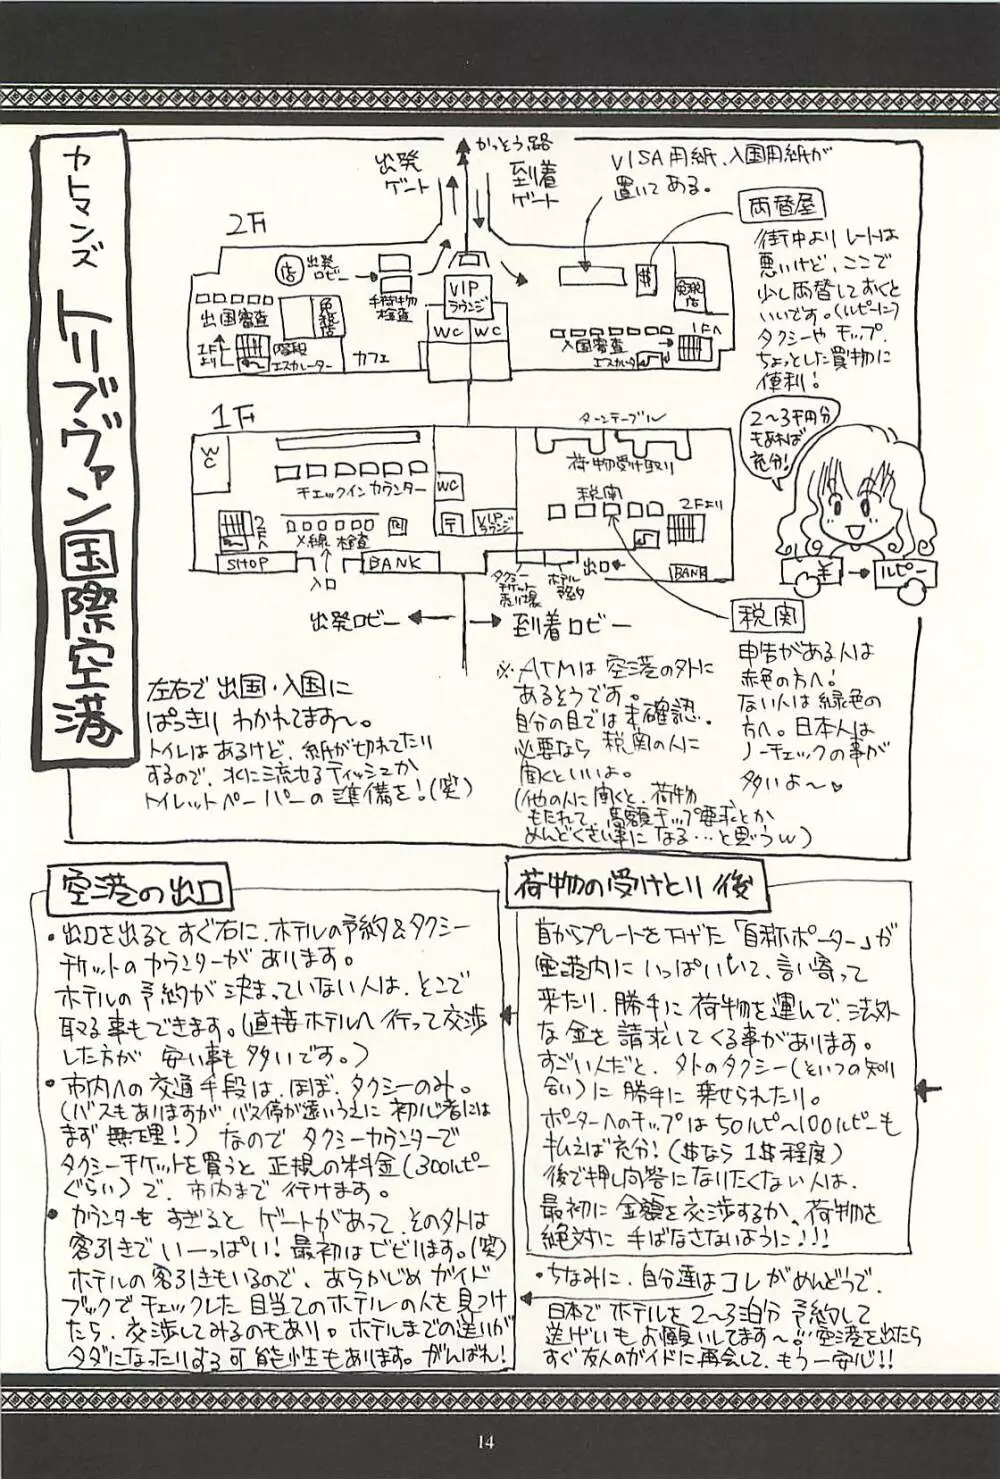 カトマンズ
トリブヴァン国際空港
かっとう路
出発
ゲート
到着
ゲート
VISA用紙、入国用紙が
置いてある。
両替屋
街中よりレートは
悪いけど、ここで
少し両替しておくと
いいです。(ルピーに)
タクシーやチップ、
ちょっとした買物に
便利!
2〜3千円分
もあれば
充分!
¥
ルピー
2F
店
出発
ロビー
手荷物
検査
VIP
ラウンジ
$
免税
店
出国審査
免税店
1F
より
階段
エスカレーター
カフェ
WC
WC
入国審査
エスカレータ
1Fへ
1F
WC
チェックインカウンター
WC
ターンテーブル
荷物受け取り
税関
2Fより
2Fへ
X線検査
〒
VIP
ラウンジ
SHOP
入口
BANK
タクシー
チケット
売り場
ホテル
予約
出口
BANK
出発ロビー
到着ロビー
税関
申告がある人は
赤色の方へ!
ない人は緑色の
方へ。日本人は
ノーチェックの事が
多いよ〜♥
左右で出国・入国に
ぱっきりわかれてます〜。
トイレはあるけど、紙が切れてたり
するので、水に流せるティッシュか
トイレットペーパーの準備を!(笑)
※ATMは空港の外に
あるそうです。
自分の目では未確認。
必要なら税関の人に
聞くといいよ。
(他の人に聞くと、荷物
もたれて、高額チップ要求とか
めんどくさい事になる…と思うw)
空港の出口
・出口を出るとすぐ右に、ホテルの予約&タクシー
チケットのカウンターがあります。
ホテルの予約が決まっていない人は、そこで
取る事もできます。(直接ホテルへ行って交渉
した方が安い事も多いです。)
・市内への交通手段は、ほぼ、タクシーのみ。
(バスもありますが、バス停が遠いうえに初心者には
まず無理!)なのでタクシーカウンターで
タクシーチケットを買うと正規の料金(300ルピー
ぐらい)で、市内まで行けます。
・カウンターもすぎるとゲートがあって、その外は
客引きでいーっぱい!最初はビビります。(笑)
ホテルの客引きもいるので、あらかじめガイド
ブックでチェックした目当てのホテルの人を見つけ
たら、交渉してみるのもあり。ホテルまでの送りが
タダになったりする可能性もあります。がんばれ!
荷物の受けとり後
首からプレートを下げた「自称ポーター」が
空港内にいっぱいいて、言い寄って
来たり、勝手に荷物を運んで、法外
な金を請求してくる事があります。
すごい人だと、外のタクシー(といつの知り
合い)に勝手に乗せられたり。
ポーターへのチップは50ルピ〜100ルピーも
払えば充分!($なら1$程度)
後で押し問答になりたくない人は、
最初に金額を交渉するか、荷物を
絶対に手ばなさないように!!!
・ちなみに、自分達はコレがめんどうで、
日本でホテルを2〜3泊分予約して
送げいもお願いしてます〜♡空港を出たら
すぐ友人のガイドに再会して、もう一安心!!
14